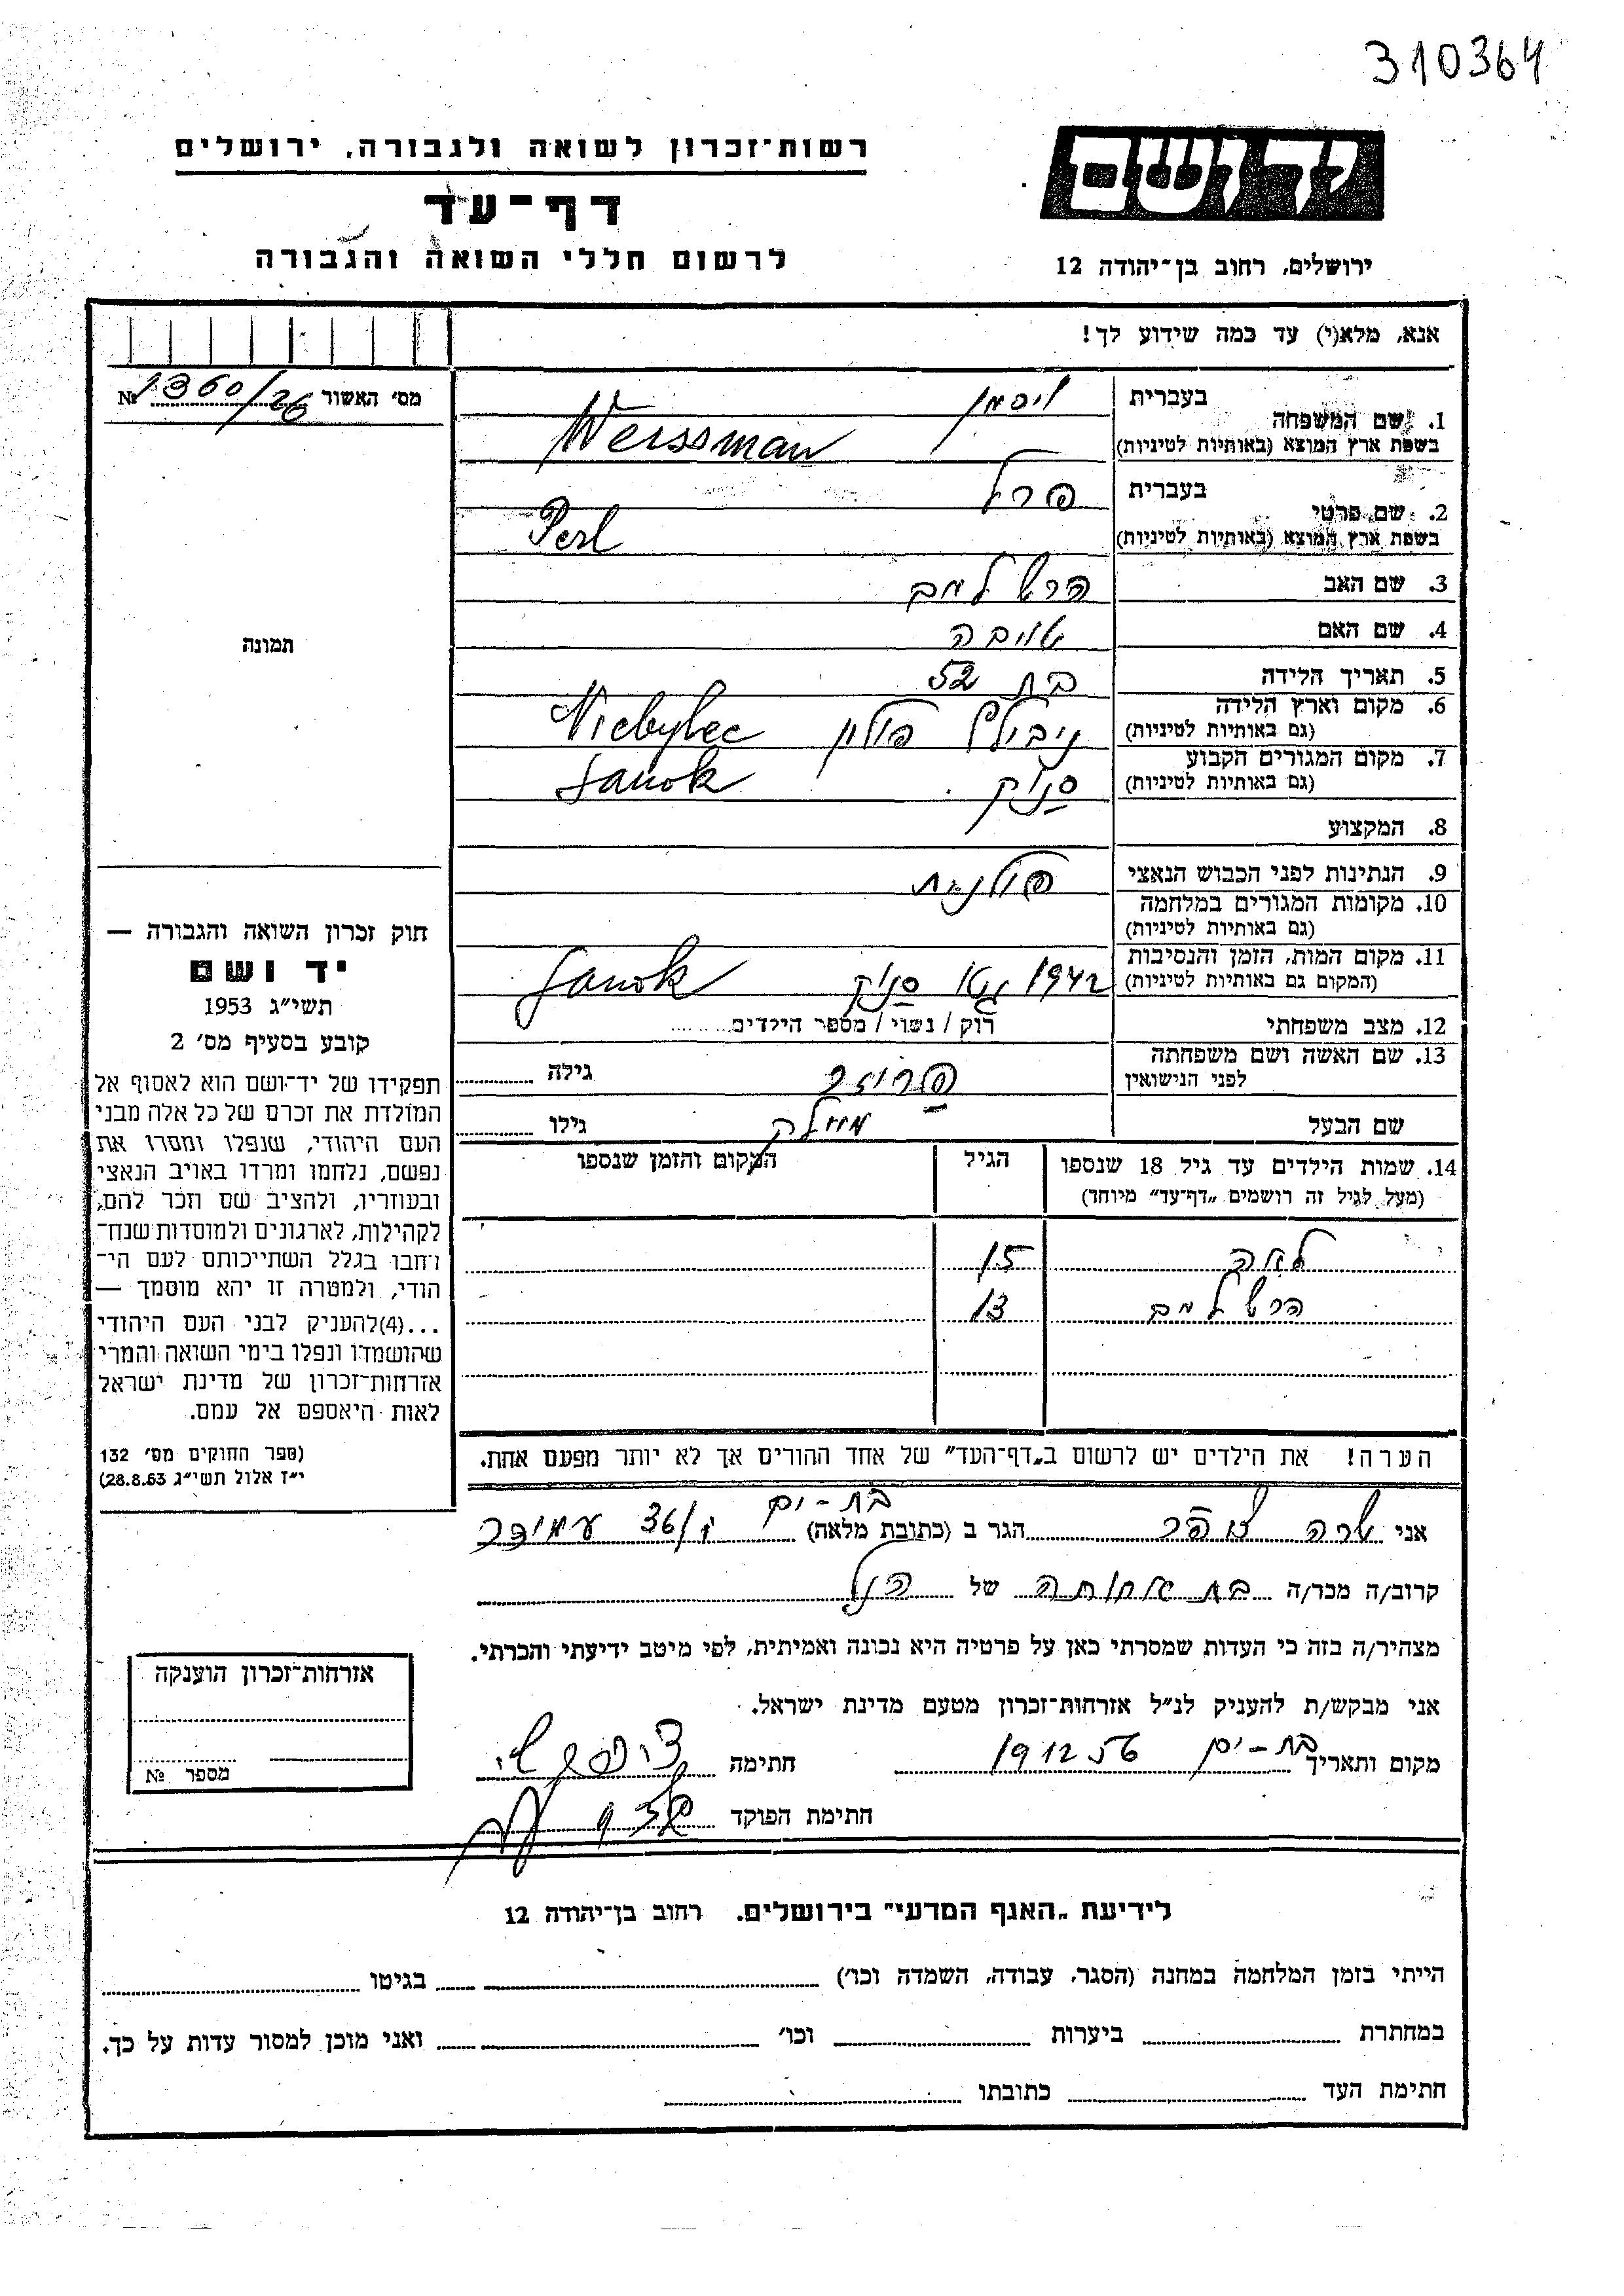 310364
יד ושם
ירושלים, רחוב בן־יהודה 12
רשות־זכרון לשואה ולגבורה, ירושלים
דף־עד
לרשום חללי השואה והגבורה
אנא, מלא(י) עד כמה שידוע לך!
מס׳ האשור № 1360/26
1. שם המשפחה
בעברית ויסמן
בשפת ארץ המוצא (באותיות לטיניות) Weissman
2. שם פרטי
בעברית פרל
בשפת ארץ המוצא (באותיות לטיניות) Perl
3. שם האב הרש למב
4. שם האם טויבה
5. תאריך הלידה בת 52
6. מקום וארץ הלידה (גם באותיות לטיניות) ניבילץ פולין Niebylec
7. מקום המגורים הקבוע (גם באותיות לטיניות) סנוק Sanok
8. המקצוע
9. הנתינות לפני הכבוש הנאצי פולנית
10. מקומות המגורים במלחמה (גם באותיות לטיניות)
11. מקום המות, הזמן והנסיבות (המקום גם באותיות לטיניות) 1942 גטו סנוק Sanok
12. מצב משפחתי רוק / נשוי / מספר הילדים
13. שם האשה ושם משפחתה לפני הנישואין גילה
שם הבעל גילו
14. שמות הילדים עד גיל 18 שנספו (מעל לגיל זה רושמים „דף־עד״ מיוחד)
הגיל
המקום והזמן שנספו
לאה 15
הרש למב 13
הערה! את הילדים יש לרשום ב„דף־העד״ של אחד ההורים אך לא יותר מפעם אחת.
אני שרה צוהר הגר ב (כתובת מלאה) בת-ים עמידר 36/
קרוב/ה מכר/ה בת אחותה של הנ״ל
מצהיר/ה בזה כי העדות שמסרתי כאן על פרטיה היא נכונה ואמיתית, לפי מיטב ידיעתי והכרתי.
אני מבקש/ת להעניק לנ״ל אזרחות־זכרון מטעם מדינת ישראל.
מקום ותאריך בת-ים 19 12 56 חתימה
חתימת הפוקד
תמונה
חוק זכרון השואה והגבורה —
יד ושם
תשי״ג 1953
קובע בסעיף מס׳ 2
תפקידו של יד־ושם הוא לאסוף אל
המולדת את זכרם של כל אלה מבני
העם היהודי, שנפלו ומסרו את
נפשם, נלחמו ומרדו באויב הנאצי
ובעוזריו, ולהציב שם וזכר להם,
לקהילות, לארגונים ולמוסדות שנח־
רחבו בגלל השתייכותם לעם הי־
הודי, ולמטרה זו יהא מוסמך —
...(4)להעניק לבני העם היהודי
שהושמדו ונפלו בימי השואה והמרי
אזרחות־זכרון של מדינת ישראל
לאות היאספם אל עמם.
(ספר החוקים מס׳ 132
י״ז אלול תשי״ג 28.8.53)
אזרחות־זכרון הוענקה
מספר №
לידיעת „האגף המדעי״ בירושלים, רחוב בן־יהודה 12
הייתי בזמן המלחמה במחנה (הסגר, עבודה, השמדה וכו׳) בגיטו
במחתרת ביערות וכו׳ ואני מוכן למסור עדות על כך.
חתימת העד כתובתו